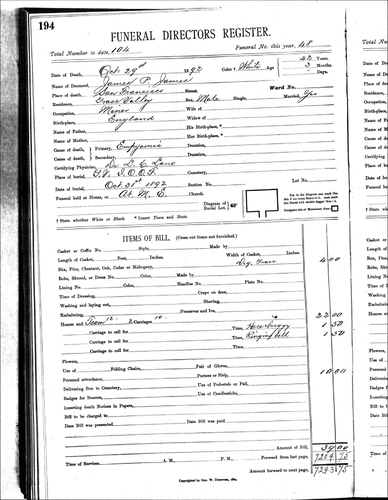 194
FUNERAL DIRECTORS REGISTER.
Total Number to date, 104 Funeral No. this year, 48
Date of Death, Oct 29th 1892 Color † White Age 42 Years. 3 Months. Days.
Name of Deceased, James P. James
Place of death, San Francisco Street. Ward No.
Residence, Grass Valley Sex, Male Single, Married, Yes
Occupation, Miner Wife of
Birth-place, England Widow of
Name of Father, His Birth-place, *
Name of Mother, Her Birth-place, *
Cause of death, Primary, Empyema Duration,
Cause of death, Secondary, Duration,
Certifying Physician, Dr L. C. Lane Lot No.
Place of burial, G.V. I.O.O.F. Cemetery,
Date of burial, Oct 31st 1892 Section No.
Funeral held at House, or At M. E. Church. Diagram of Burial Lot.
† State whether White or Black. * Insert Town and State.
ITEMS OF BILL. (Cross out items not furnished.)
Casket or Coffin No. Style, Made by
Length of Casket, Feet, Inches. Width of Casket, Inches.
Bix, Pine, Chestnut, Oak, Cedar or Mahogany, Dig. Grave 4 00
Robe, Shroud, or Dress No. Color, Made by
Lining No. Color, Handles No. Plate No.
Time of Dressing, Crape on door,
Washing and laying out, Shaving,
Embalming, Preserves and Ice,
Hearse and Team 12 2 Carriages 10 22 00
Carriage to call for Time, Horse Buggy 1 50
Carriage to call for Time, Ringing bell 1 50
Carriage to call for Time,
Flowers,
Use of Folding Chairs, Pair of Gloves,
Personal attendance, Porters or Help, 10 00
Delivering Box to Cemetery, Use of Pedestals or Pall,
Badges for Bearers, Use of Candlesticks,
Inserting death Notices in Papers,
Bill to be charged to
Date Bill was presented Date Bill was paid
Amount of Bill, 39 00
Time of Services, A. M., P. M., Forward from last page, 7204 75
Amount forward to next page, 7243 75